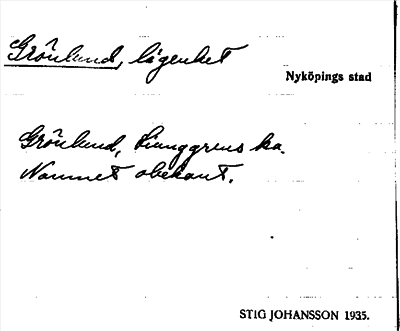 Grönlund, lägenhet
Nyköpings stad
Grönlund, Ljunggrens ka.
Namnet obekant.
STIG JOHANSSON 1935.